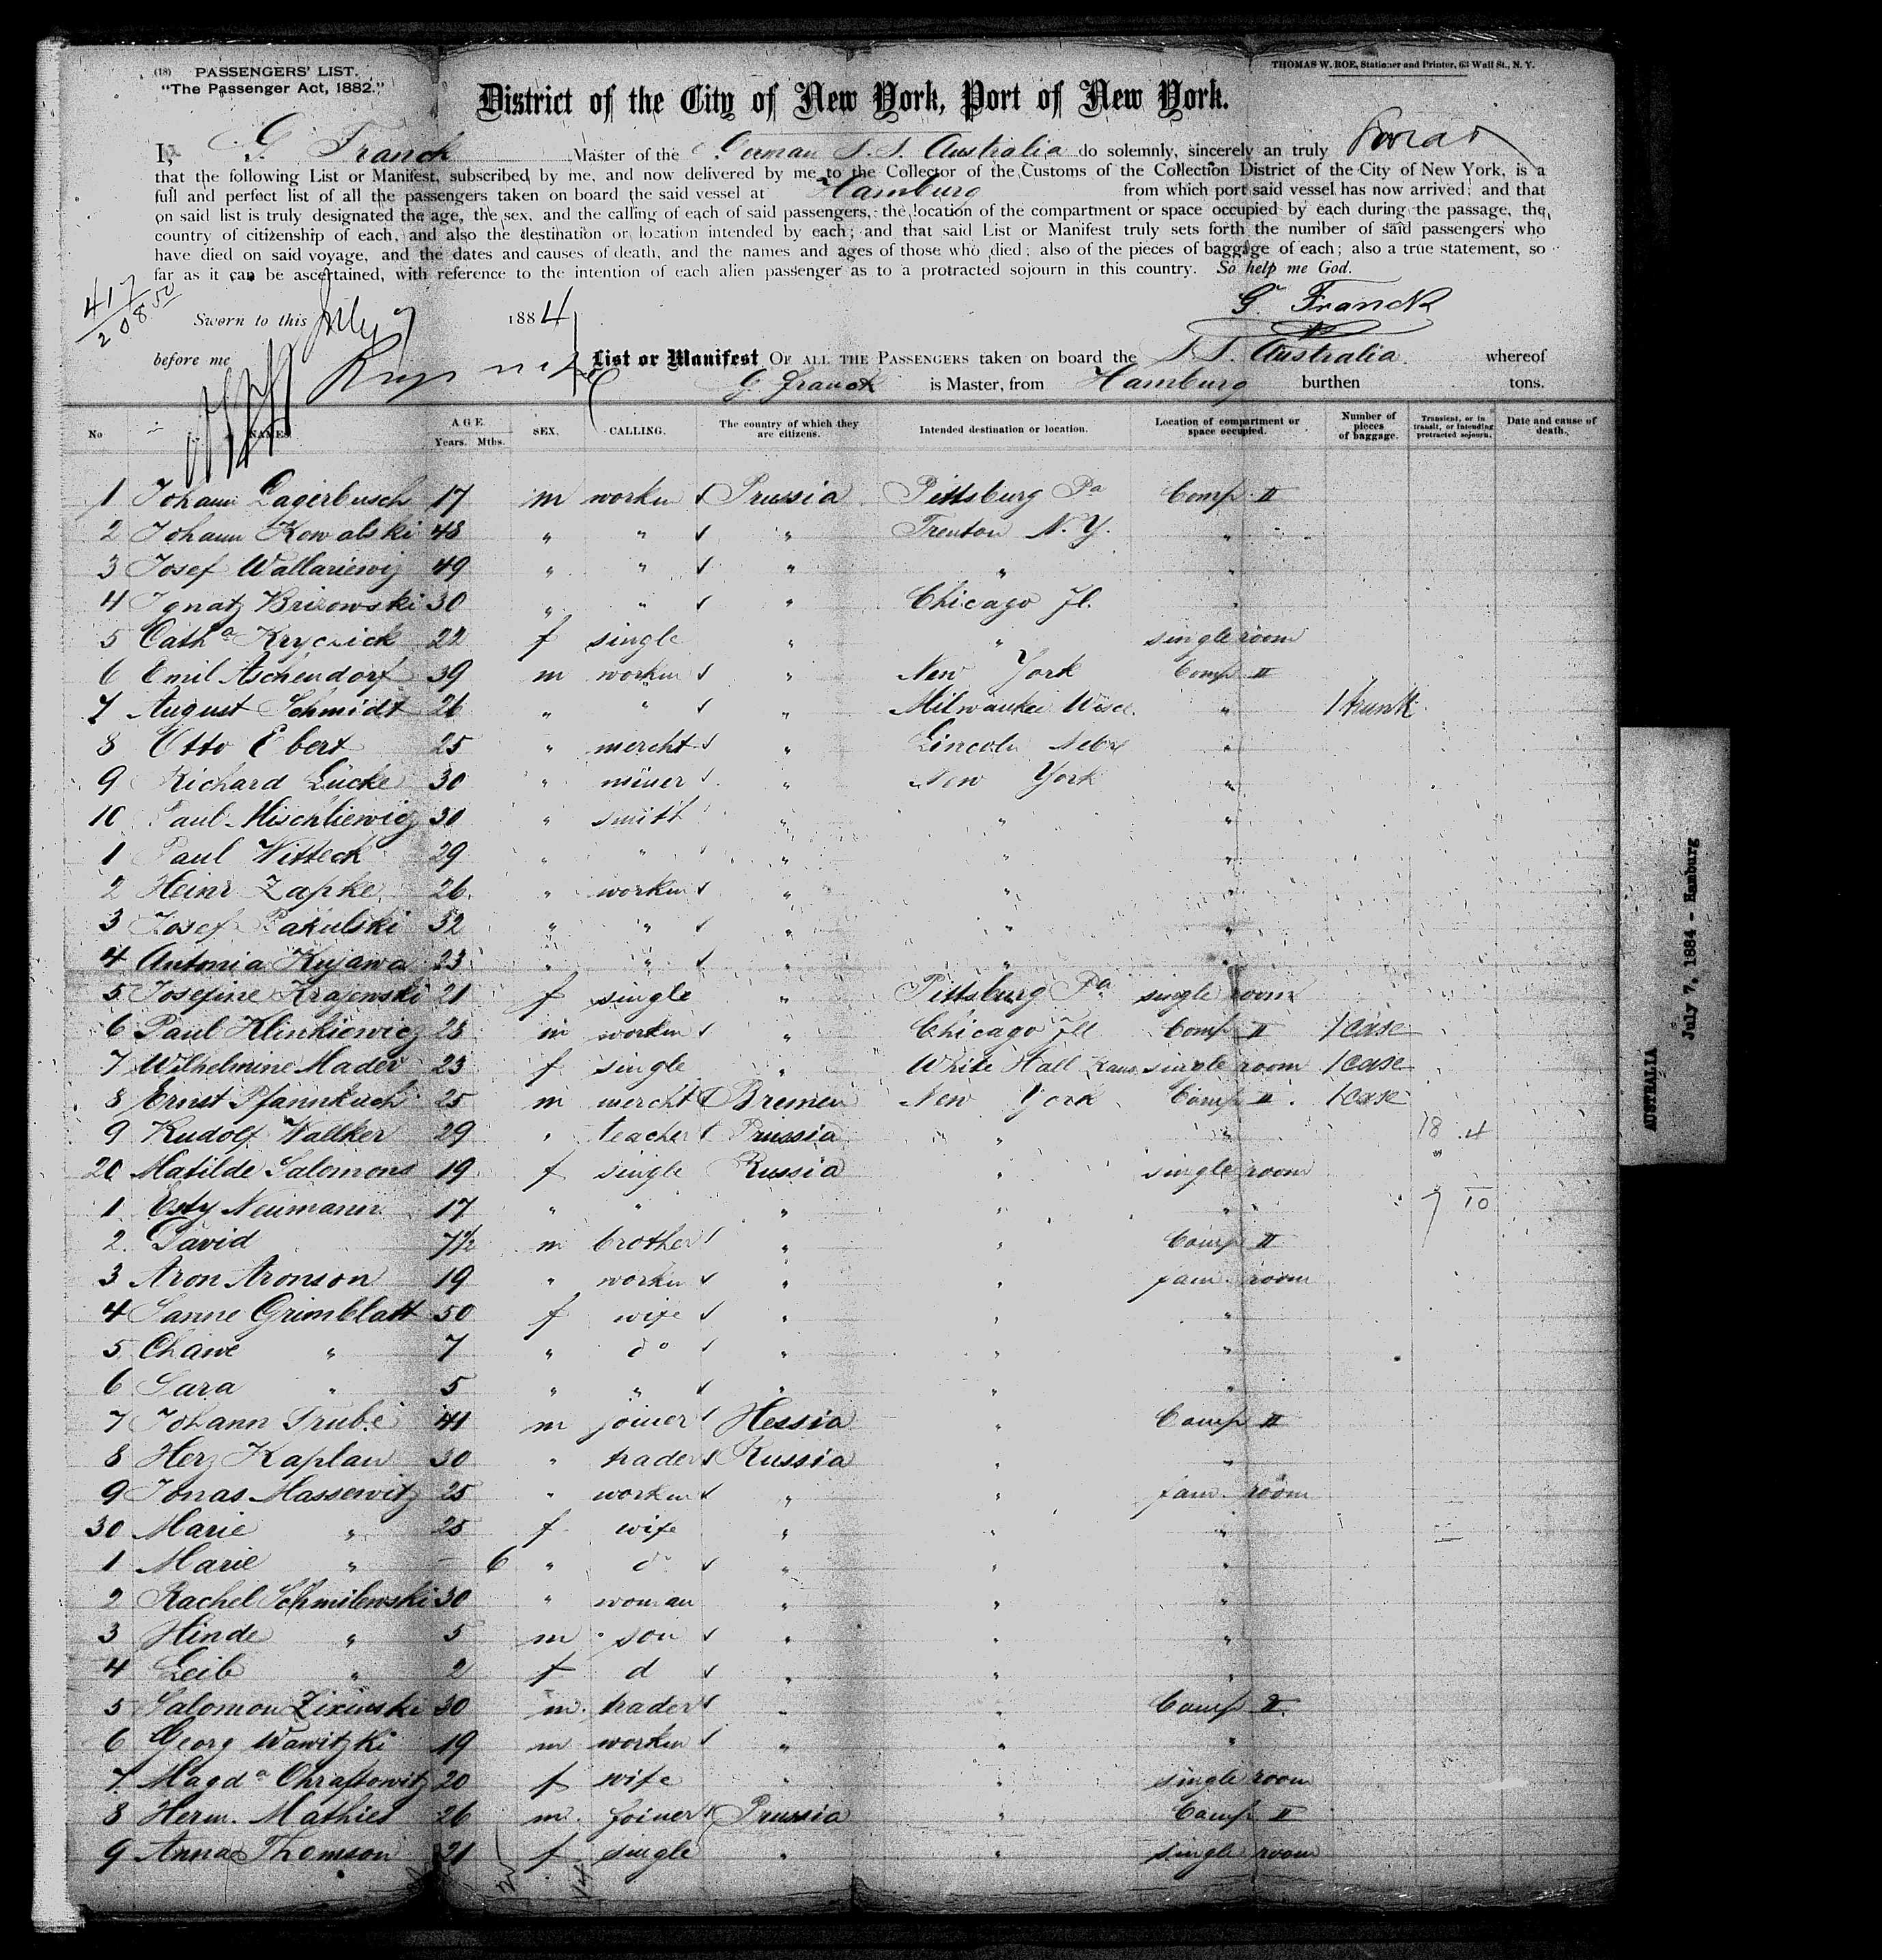 (18) PASSENGERS' LIST.
"The Passenger Act, 1882."
THOMAS W. ROE, Stationer and Printer, 63 Wall St., N. Y.
District of the City of New York, Port of New York.
I, G Franck Master of the German S. S. Australia do solemnly, sincerely an truly swear
that the following List or Manifest, subscribed by me, and now delivered by me to the Collector of the Customs of the Collection District of the City of New York, is a
full and perfect list of all the passengers taken on board the said vessel at Hamburg from which port said vessel has now arrived; and that
on said list is truly designated the age, the sex, and the calling of each of said passengers, the location of the compartment or space occupied by each during the passage, the
country of citizenship of each, and also the destination or location intended by each; and that said List or Manifest truly sets forth the number of said passengers who
have died on said voyage, and the dates and causes of death, and the names and ages of those who died; also of the pieces of baggage of each; also a true statement, so
far as it can be ascertained, with reference to the intention of each alien passenger as to a protracted sojourn in this country. So help me God.
417
208 50
G Franck
Sworn to this July 7 1884
before me
List or Manifest OF ALL THE PASSENGERS taken on board the S. S. Australia whereof
G Franck is Master, from Hamburg burthen tons.
No NAMES AGE Years. Mths. SEX. CALLING. The country of which they are citizens. Intended destination or location. Location of compartment or space occupied. Number of pieces of baggage. Transient, or in transit, or intending protracted sojourn. Date and cause of death.
1 Johann Lagerbusch 17 m worker Prussia Pittsburg Pa Comp II
2 Johann Kowalski 48 " " " Trenton N. Y. "
3 Josef Wallariewiz 49 " " " " "
4 Ignatz Brizowski 30 " " " Chicago Il. "
5 Catha Kryczick 22 f single " " single room
6 Emil Aschendorf 39 m worker " New York Comp II
7 August Schmidt 26 " " " Milwaukee Wisc. " 1 trunk
8 Otto Ebert 25 " mercht " Lincoln Nebr "
9 Richard Lücke 30 " miner " New York "
10 Paul Mischliewicz 30 " smith " " "
1 Paul Witteck 29 " " " " "
2 Heinr Zapke 26 " worker " " "
3 Josef Pakulski 32 " " " " "
4 Antonia Kujawa 23 " " " " "
5 Josefine Krajewski 21 f single " Pittsburg Pa single room
6 Paul Klinkiewicz 28 m worker " Chicago Ill Comp II 1 case
7 Wilhelmine Mader 23 f single " White Hall Kans single room 1 case
8 Ernst Pfannkuch 25 m mercht Bremen New York Comp II 1 case
9 Rudolf Wallker 29 " teacher Prussia " " 18 4
20 Matilde Salomons 19 f single Russia " single room
1 Esty Neumann 17 " " " " " 7 10
2 David 7½ m brother " " Comp II
3 Aron Aronson 19 " worker " " fam. room
4 Sanne Grimblatt 50 f wife " " "
5 Chawe " 7 " do " " "
6 Sara " 5 " " " " "
7 Johann Trube 41 m joiner Hessia " Comp II
8 Herz Kaplan 30 " trader Russia " "
9 Jonas Massewitz 25 " worker " " fam. room
30 Marie " 25 f wife " " "
1 Marie " – 6 " d " " "
2 Rachel Schmilewski 30 " woman " " "
3 Hinde " 5 m son " " "
4 Leib " 2 f d " " "
5 Salomon Zixinski 30 m. trader " " Comp II.
6 Georg Wawitzki 19 m worker " " "
7 Magda Chraftowitz 20 f wife " " single room
8 Herm. Mathies 26 m. joiner Prussia " Comp II
9 Anna Thomson 21 f single " " single room
14
AUSTRALIA
July 7, 1884 - Hamburg